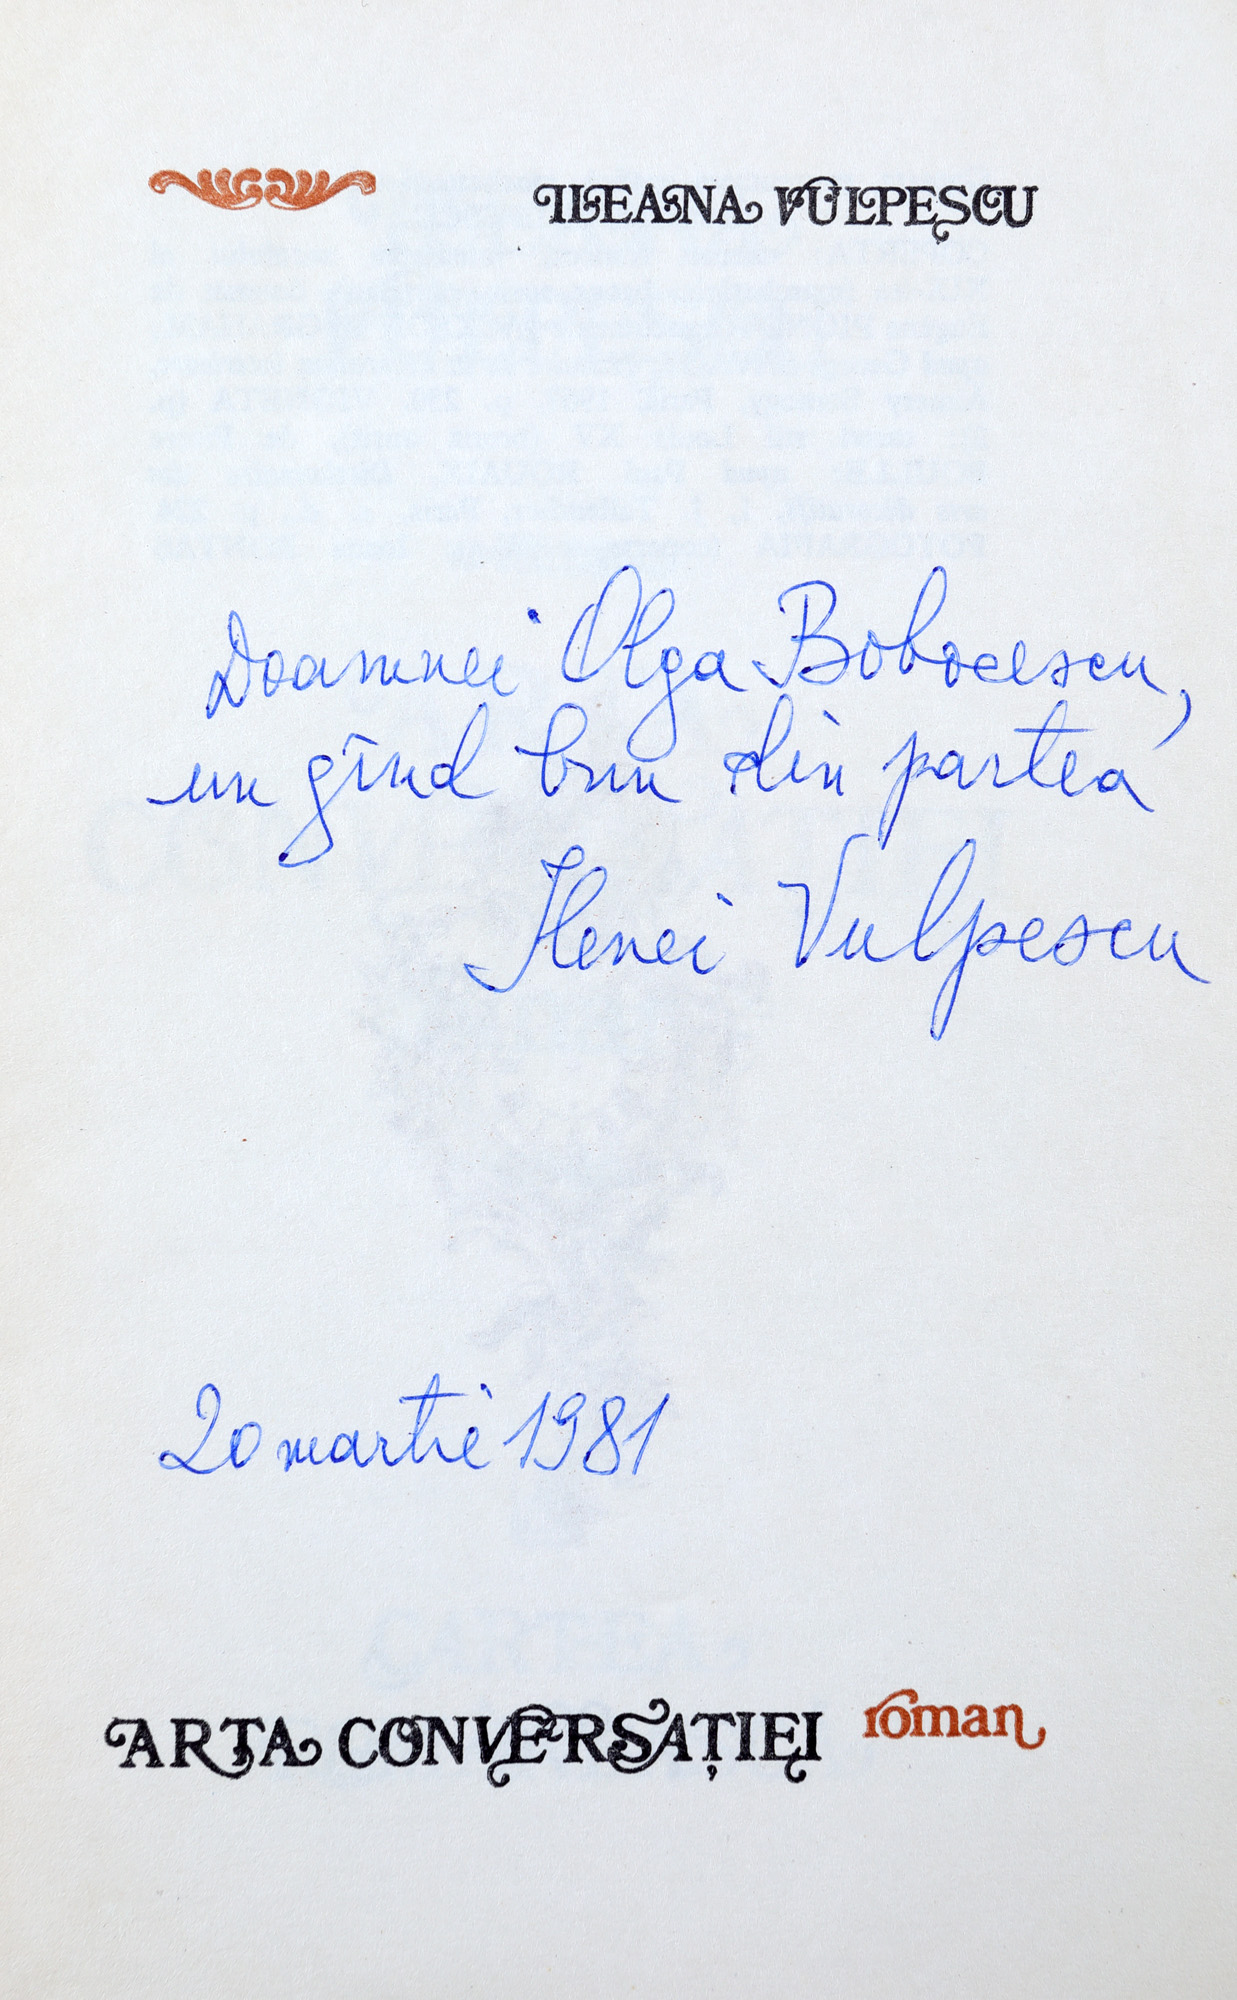 ILEANA VULPESCU
Doamnei Olga Bobocescu,
un gînd bun din partea
Ilenei Vulpescu
20 martie 1981
ARTA CONVERSAȚIEI roman